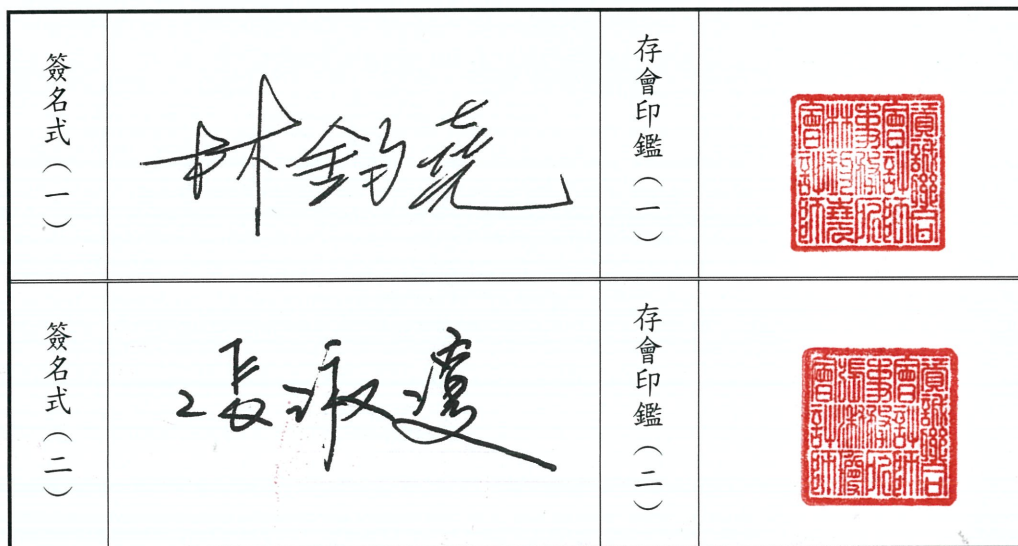 簽名式（一）
林鈞堯
存會印鑑（一）
資誠聯合
會計師
事務所
林鈞堯
會計師
簽名式（二）
張淑瓊
存會印鑑（二）
資誠聯合
會計師
事務所
張淑瓊
會計師